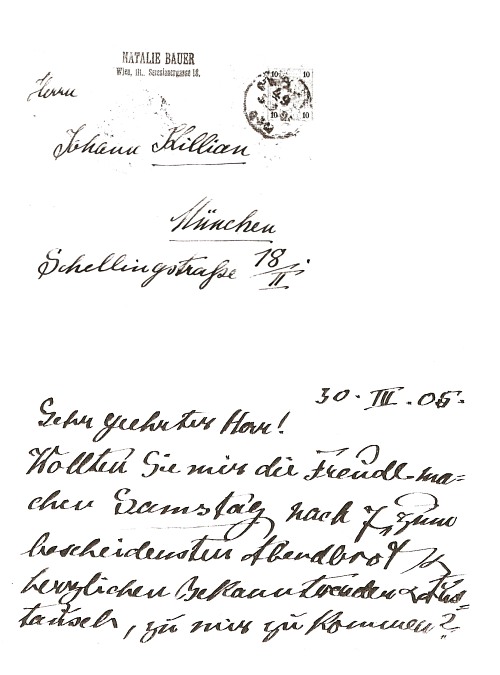 NATALIE BAUER
Wien, III., Seeslasergasse 18.
10 10
10 10
Herrn
Johann Killian
München
Schellingstraße 18/II.
30. III. 05.
Sehr geehrter Herr!
Wollten Sie mir die Freude ma=
chen Samstag nach 7, zum
bescheidensten Abendbrot &
herzlichen Bekanntwerden & Aus=
tausch, zu mir zu kommen?